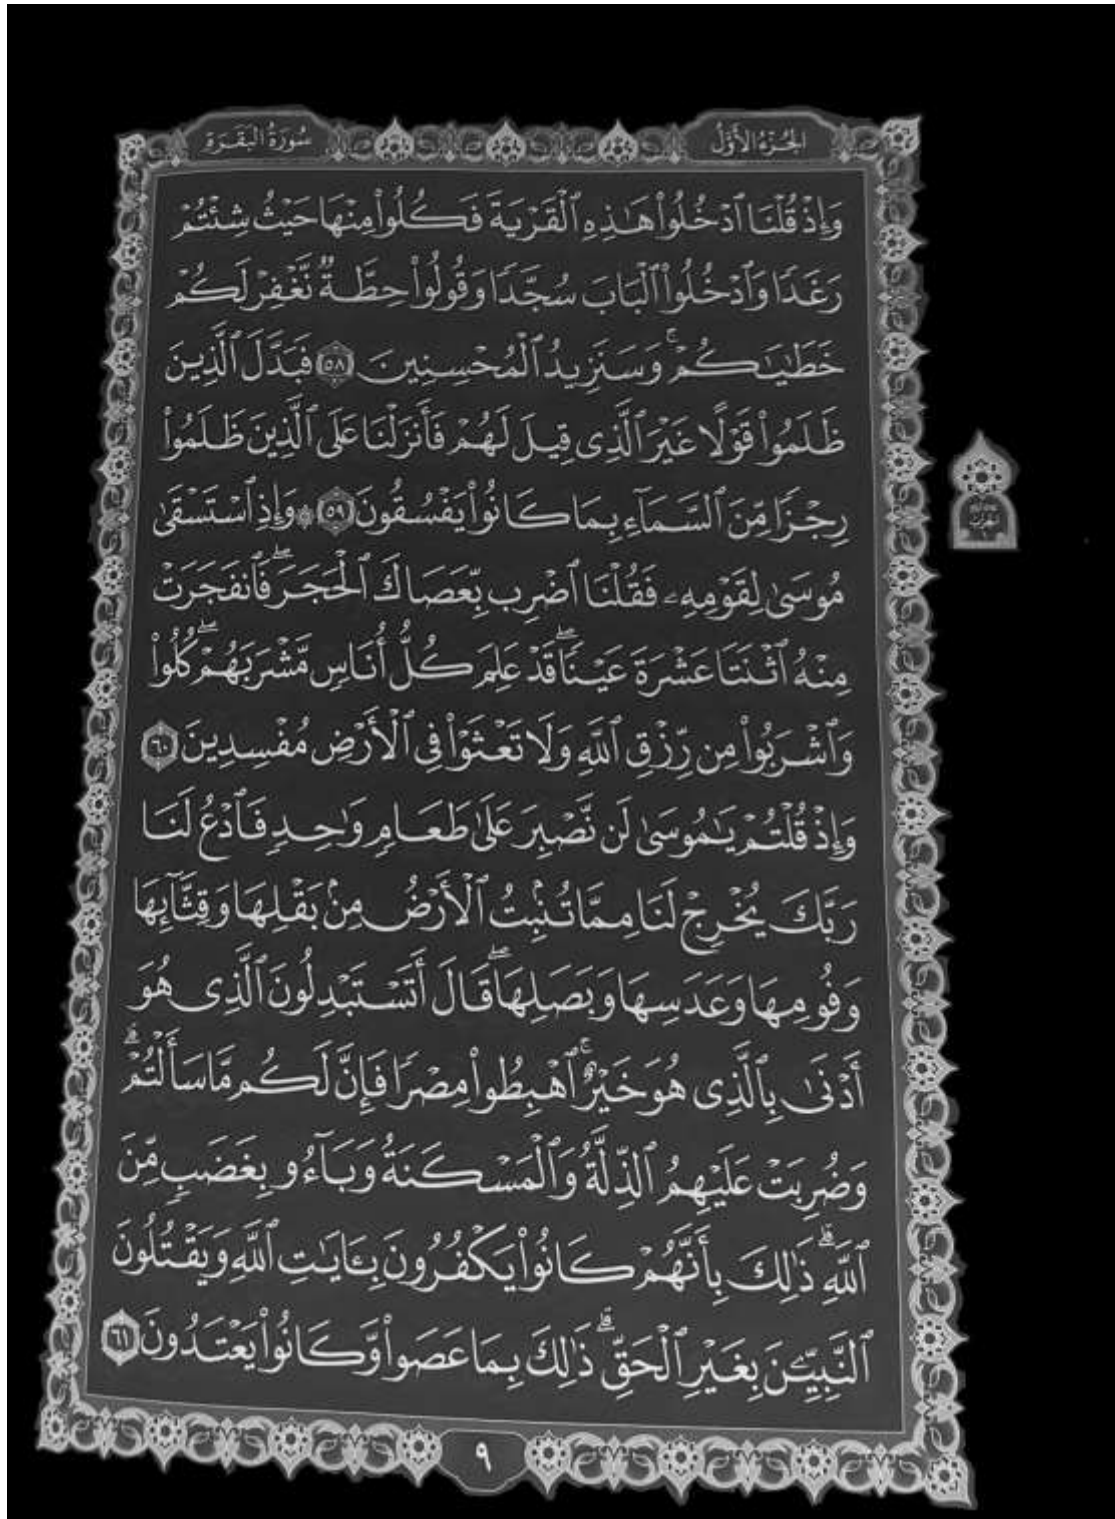 الجُزْءُ الأَوَّلُ
سُورَةُ البَقَرَةِ
وَإِذْ قُلْنَا ٱدْخُلُوا۟ هَٰذِهِ ٱلْقَرْيَةَ فَكُلُوا۟ مِنْهَا حَيْثُ شِئْتُمْ
رَغَدًا وَٱدْخُلُوا۟ ٱلْبَابَ سُجَّدًا وَقُولُوا۟ حِطَّةٌ نَّغْفِرْ لَكُمْ
خَطَٰيَٰكُمْ ۚ وَسَنَزِيدُ ٱلْمُحْسِنِينَ ٥٨ فَبَدَّلَ ٱلَّذِينَ
ظَلَمُوا۟ قَوْلًا غَيْرَ ٱلَّذِى قِيلَ لَهُمْ فَأَنزَلْنَا عَلَى ٱلَّذِينَ ظَلَمُوا۟
رِجْزًا مِّنَ ٱلسَّمَآءِ بِمَا كَانُوا۟ يَفْسُقُونَ ٥٩ ۞ وَإِذِ ٱسْتَسْقَىٰ
مُوسَىٰ لِقَوْمِهِۦ فَقُلْنَا ٱضْرِب بِّعَصَاكَ ٱلْحَجَرَ ۖ فَٱنفَجَرَتْ
مِنْهُ ٱثْنَتَا عَشْرَةَ عَيْنًا ۖ قَدْ عَلِمَ كُلُّ أُنَاسٍ مَّشْرَبَهُمْ ۖ كُلُوا۟
وَٱشْرَبُوا۟ مِن رِّزْقِ ٱللَّهِ وَلَا تَعْثَوْا۟ فِى ٱلْأَرْضِ مُفْسِدِينَ ٦٠
وَإِذْ قُلْتُمْ يَٰمُوسَىٰ لَن نَّصْبِرَ عَلَىٰ طَعَامٍ وَٰحِدٍ فَٱدْعُ لَنَا
رَبَّكَ يُخْرِجْ لَنَا مِمَّا تُنۢبِتُ ٱلْأَرْضُ مِنۢ بَقْلِهَا وَقِثَّآئِهَا
وَفُومِهَا وَعَدَسِهَا وَبَصَلِهَا ۖ قَالَ أَتَسْتَبْدِلُونَ ٱلَّذِى هُوَ
أَدْنَىٰ بِٱلَّذِى هُوَ خَيْرٌ ۚ ٱهْبِطُوا۟ مِصْرًا فَإِنَّ لَكُم مَّا سَأَلْتُمْ ۗ
وَضُرِبَتْ عَلَيْهِمُ ٱلذِّلَّةُ وَٱلْمَسْكَنَةُ وَبَآءُو بِغَضَبٍ مِّنَ
ٱللَّهِ ۗ ذَٰلِكَ بِأَنَّهُمْ كَانُوا۟ يَكْفُرُونَ بِـَٔايَٰتِ ٱللَّهِ وَيَقْتُلُونَ
ٱلنَّبِيِّـۧنَ بِغَيْرِ ٱلْحَقِّ ۗ ذَٰلِكَ بِمَا عَصَوا۟ وَّكَانُوا۟ يَعْتَدُونَ ٦١
٩